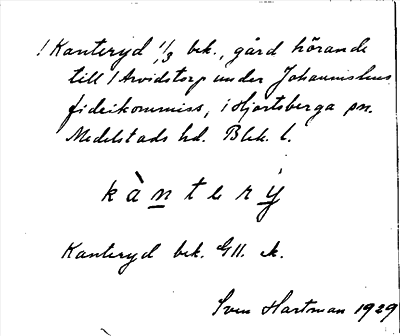 ! Kanteryd 1/3 bek., gård hörande
till ! Arvidstorp under Johannishus
fideikommiss, i Hjortsberga sn.
Medelstads hd. Blek. l.
kàntery
Kanteryd bek. Gll. ek.
Sven Hartman 1929